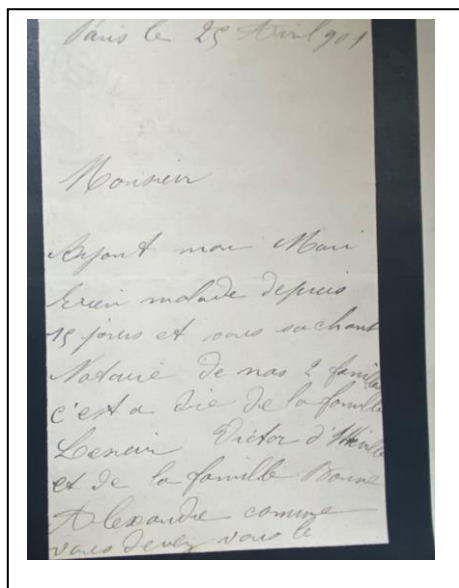 Paris le 25 Avril 901
Monsieur
Ayant mon Mari
bien malade depuis
15 jours et vous sachant
Notaire de nos 2 famille
c'est a die de la famille
Lenoir Victor
et de la famille Bonne
Alexandre comme
vous devez vous le